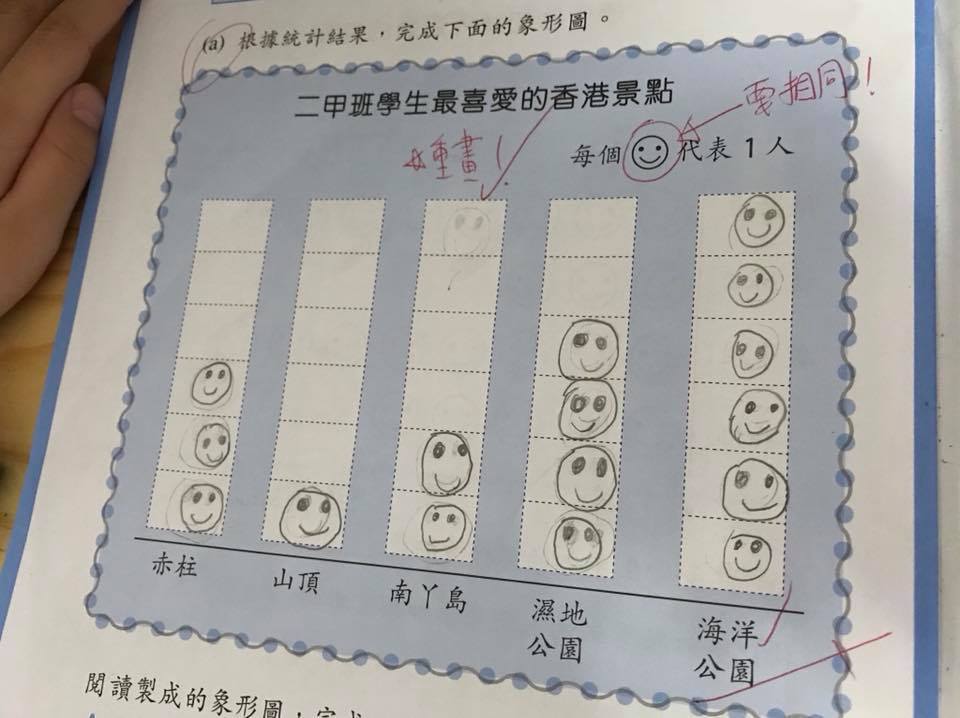 (a) 根據統計結果，完成下面的象形圖。
二甲班學生最喜愛的香港景點
要相同！
重畫！
每個 代表 1 人
赤柱
山頂
南丫島
濕地
公園
海洋
公園
閱讀製成的象形圖，完